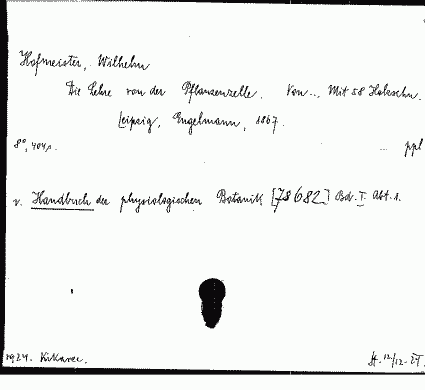 Hofmeister, Wilhelm
Die Lehre von der Pflanzenzelle. Von ... Mit 58 Holzschn.
Leipzig, Engelmann, 1867.
8°, 404 s. ... ppl
v. Handbuch der physiologischen Botanik [78682] Bd. I Abt. 1.
1924. Krkavec.